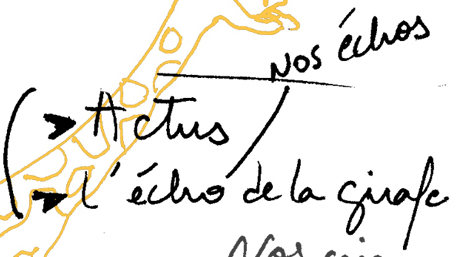 Nos échos
Actus
L'écho de la girafe
Nos